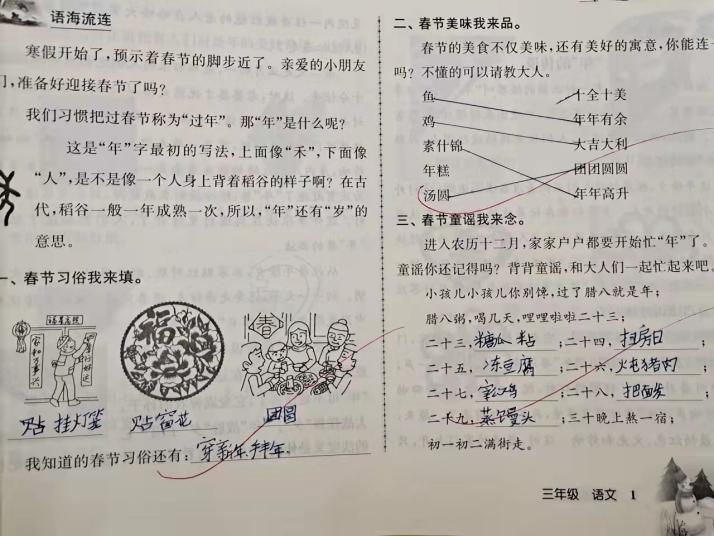 语海流连
寒假开始了，预示着春节的脚步近了。亲爱的小朋友
们，准备好迎接春节了吗？
我们习惯把过春节称为“过年”。那“年”是什么呢？
这是“年”字最初的写法，上面像“禾”，下面像
“人”，是不是像一个人身上背着稻谷的样子啊？在古
代，稻谷一般一年成熟一次，所以，“年”还有“岁”的
意思。
一、春节习俗我来填。
福
春
家和万事兴
贴 挂灯笼 贴窗花 团圆
我知道的春节习俗还有：穿新衣，拜年。
二、春节美味我来品。
春节的美食不仅美味，还有美好的寓意，你能连一
吗？不懂的可以请教大人。
鱼 十全十美
鸡 年年有余
素什锦 大吉大利
年糕 团团圆圆
汤圆 年年高升
三、春节童谣我来念。
进入农历十二月，家家户户都要开始忙“年”了。
童谣你还记得吗？背背童谣，和大人们一起忙起来吧。
小孩儿小孩儿你别馋，过了腊八就是年；
腊八粥，喝几天，哩哩啦啦二十三；
二十三，糖瓜粘；二十四，扫房日；
二十五，冻豆腐；二十六，炖猪肉；
二十七，宰鸡；二十八，把面发；
二十九，蒸馒头；三十晚上熬一宿；
初一初二满街走。
三年级 语文 1